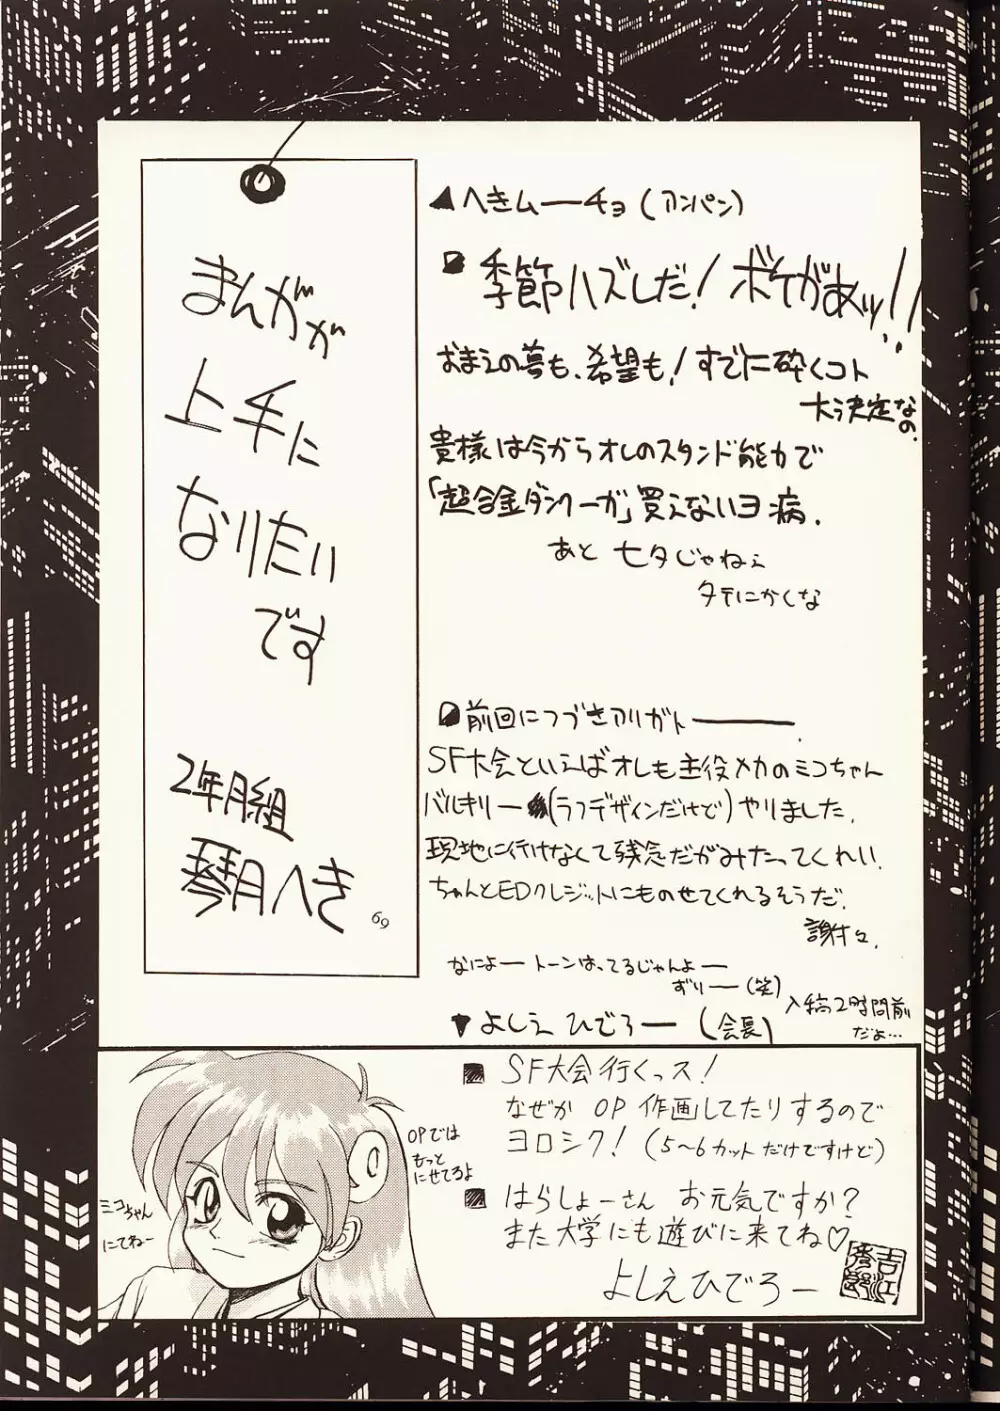 まんがが
上手に
なりたい
です
2年月組
琴月へき
69
▲へきムーチョ(アンパン)
季節ハズレだ!ボケがあッ!!
おまえの夢も、希望も!すでに砕くコト
大決定なの、
貴様は今からオレのスタンド能力で
「超合金ダンクーガ」買えないヨ病.
あと 七夕じゃねぇ
タテにかくな
前回につづきアリガトー.
SF大会といえばオレも主役メカのミコちゃん
バルキリー(ラフデザインだけど)やりました.
現地に行けなくて残念だがみたってくれい.
ちゃんとEDクレジットにものせてくれるそうだ.
謝々.
なによートーンはってるじゃんよー
ずりー(笑)
入稿2時間前
だよ…
▼よしえ ひでろー(会長)
■SF大会行くっス!
なぜか OP 作画してたりするので
ヨロシク!(5〜6カットだけですけど)
■はらしょーさん お元気ですか?
また大学にも遊びに来てね♡
よしえひでろー
吉江
秀郎
OPでは
もっと
にせてるよ
ミコちゃん
にてねー